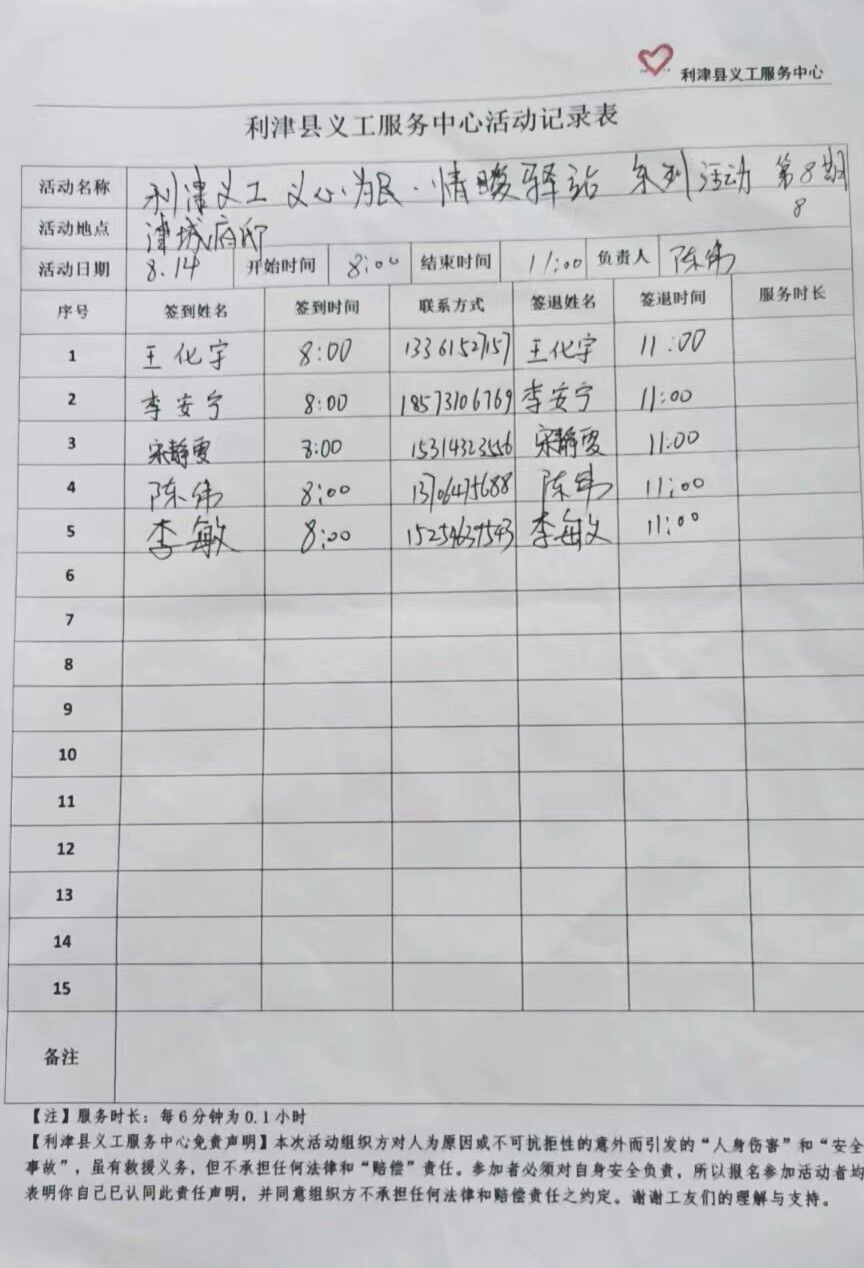 利津县义工服务中心
利津县义工服务中心活动记录表
活动名称 利津义工 义心为民·情暖驿站 系列活动 第8期
8
活动地点 津城府邸
活动日期 8.14 开始时间 8:00 结束时间 11:00 负责人 陈伟
序号 签到姓名 签到时间 联系方式 签退姓名 签退时间 服务时长
1 王化宇 8:00 13361527157 王化宇 11:00
2 李安宁 8:00 18573106769 李安宁 11:00
3 宋静雯 8:00 15314323556 宋静雯 11:00
4 陈伟 8:00 13706475688 陈伟 11:00
5 李敏 8:00 15254637543 李敏 11:00
6
7
8
9
10
11
12
13
14
15
备注
【注】服务时长：每6分钟为0.1小时
【利津县义工服务中心免责声明】本次活动组织方对人为原因或不可抗拒性的意外而引发的“人身伤害”和“安全
事故”，虽有救援义务，但不承担任何法律和“赔偿”责任。参加者必须对自身安全负责，所以报名参加活动者均
表明你自己已认同此责任声明，并同意组织方不承担任何法律和赔偿责任之约定。谢谢工友们的理解与支持。